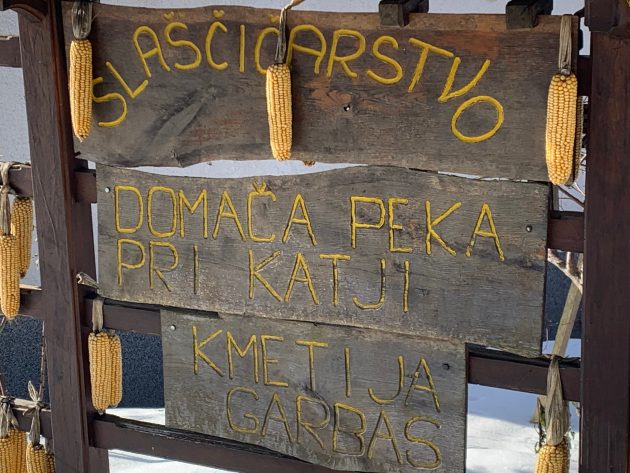 SLAŠČIČARSTVO
DOMAČA PEKA
PRI KATJI
KMETIJA
GARBAS